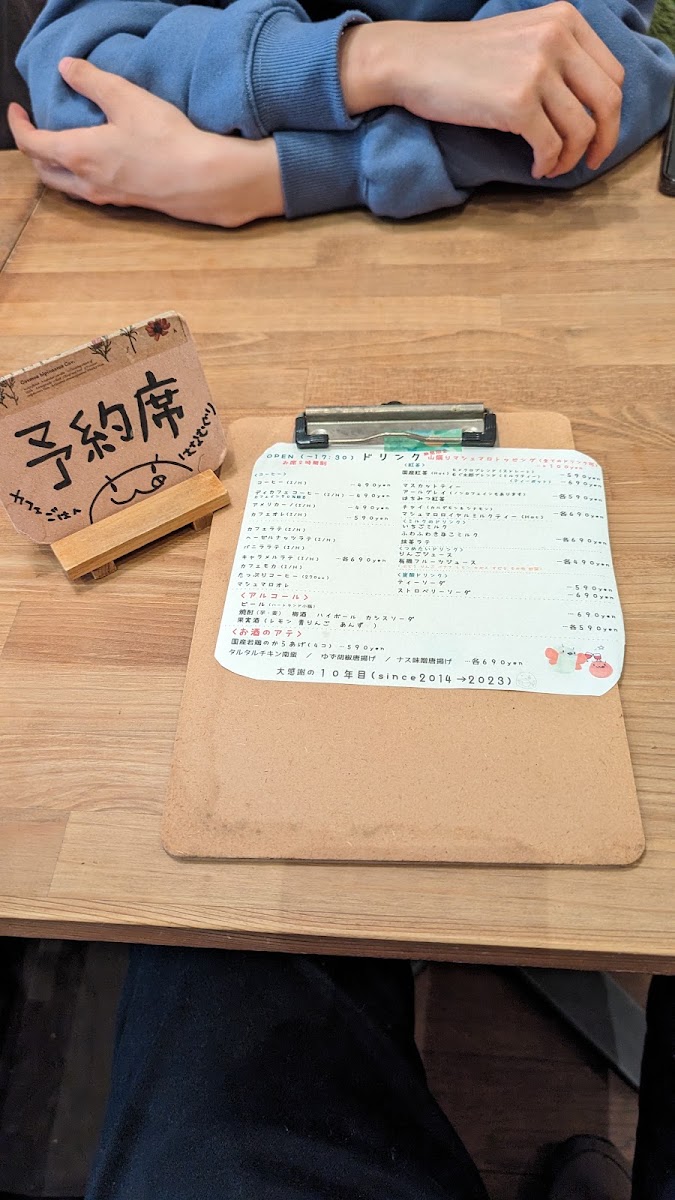 予約席
カフェごはん
はなむぐり
OPEN (~17:30) ドリンク
〈コーヒー〉
コーヒー (I/H) -490yen
ディカフェコーヒー (I/H) -490yen
アメリカーノ(I/H) -490yen
カフェオレ(I/H) -590yen
カフェラテ(I/H)
ヘーゼルナッツラテ (I/H)
バニララテ (I/H)
キャラメルラテ (I/H) -各690yen
カフェモカ (I/H)
たっぷりコーヒー (270cc)
マシュマロオレ
〈紅茶〉
国産紅茶 (Hot) -590yen
-690yen
マスカットティー
アールグレイ
はちみつ紅茶 -各590yen
チャイ
マシュマロロイヤルミルクティー (Hot) -各690yen
〈ミルクのドリンク〉
いちごミルク
ふわふわきなこミルク
抹茶ラテ -各690yen
〈つめたいドリンク〉
りんごジュース
有機フルーツジュース -各490yen
ティーソーダ -590yen
ストロベリーソーダ -690yen
〈アルコール〉
ビール -690yen
焼酎(芋・麦) 梅酒 ハイボール カシスソーダ
果実酒(レモン 青りんご あんず ) -各590yen
〈お酒のアテ〉
国産若鶏のからあげ(4コ) -590yen
タルタルチキン南蛮 / ゆず胡椒唐揚げ / ナス味噌唐揚げ -各690yen
大感謝の10年目(since2014→2023)